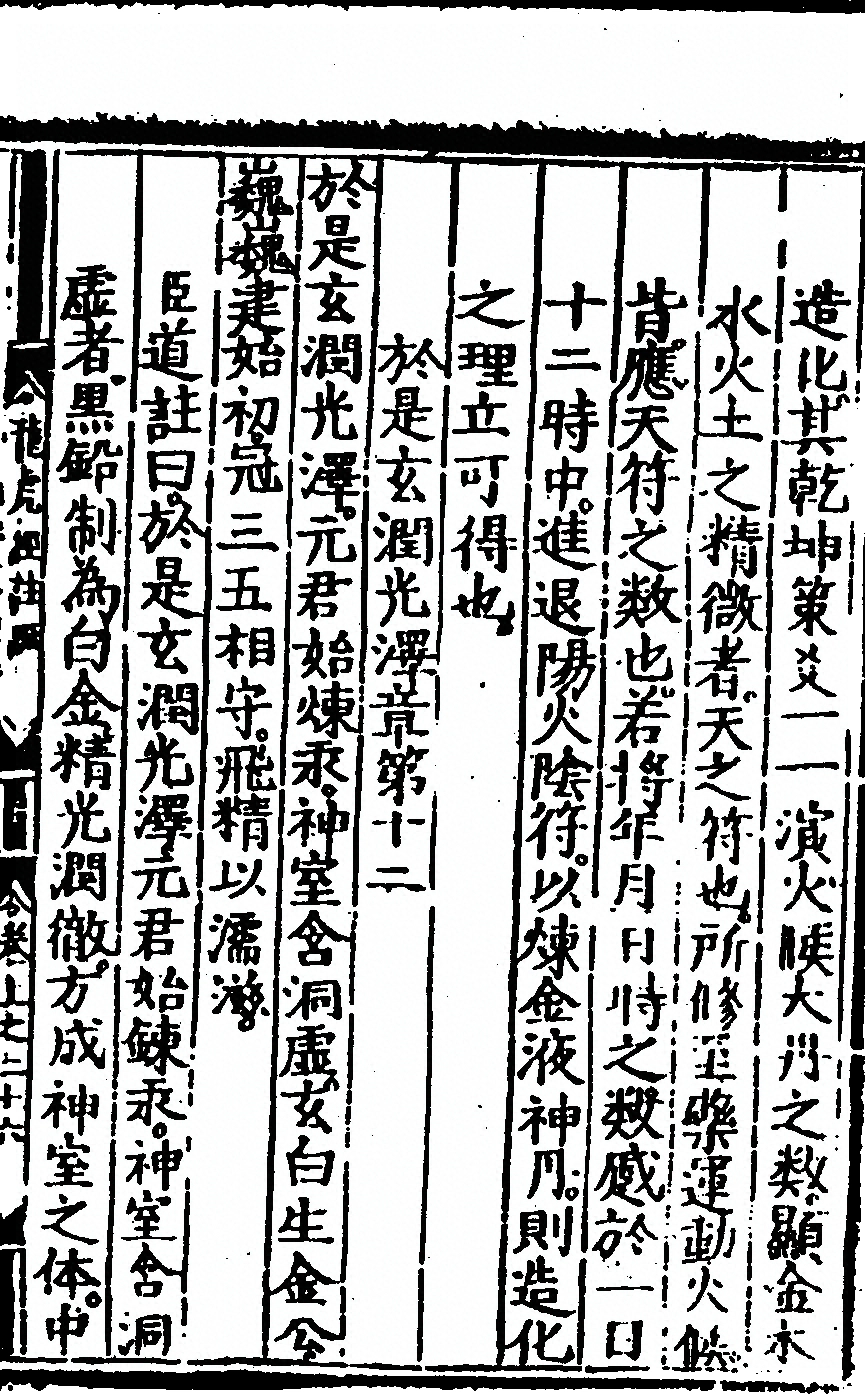 造化其乾坤策爻一一演火候大丹之数顯金木
水火土之精微者天之符也所修至藥運動火候
皆應天符之数也若將年月日時之数感於一日
十二時中進退陽火陰符以煉金液神丹則造化
之理立可得也
於是玄潤光澤章第十二
於是玄潤光澤元君始煉汞神室含洞虛玄白生金公
巍巍建始初冠三五相守飛精以濡滋
臣道註曰於是玄潤光澤元君始鍊汞神室含洞
虛者黑鉛制為白金精光潤徹方成神室之体中
龍虎經註疏
卷上之二十六